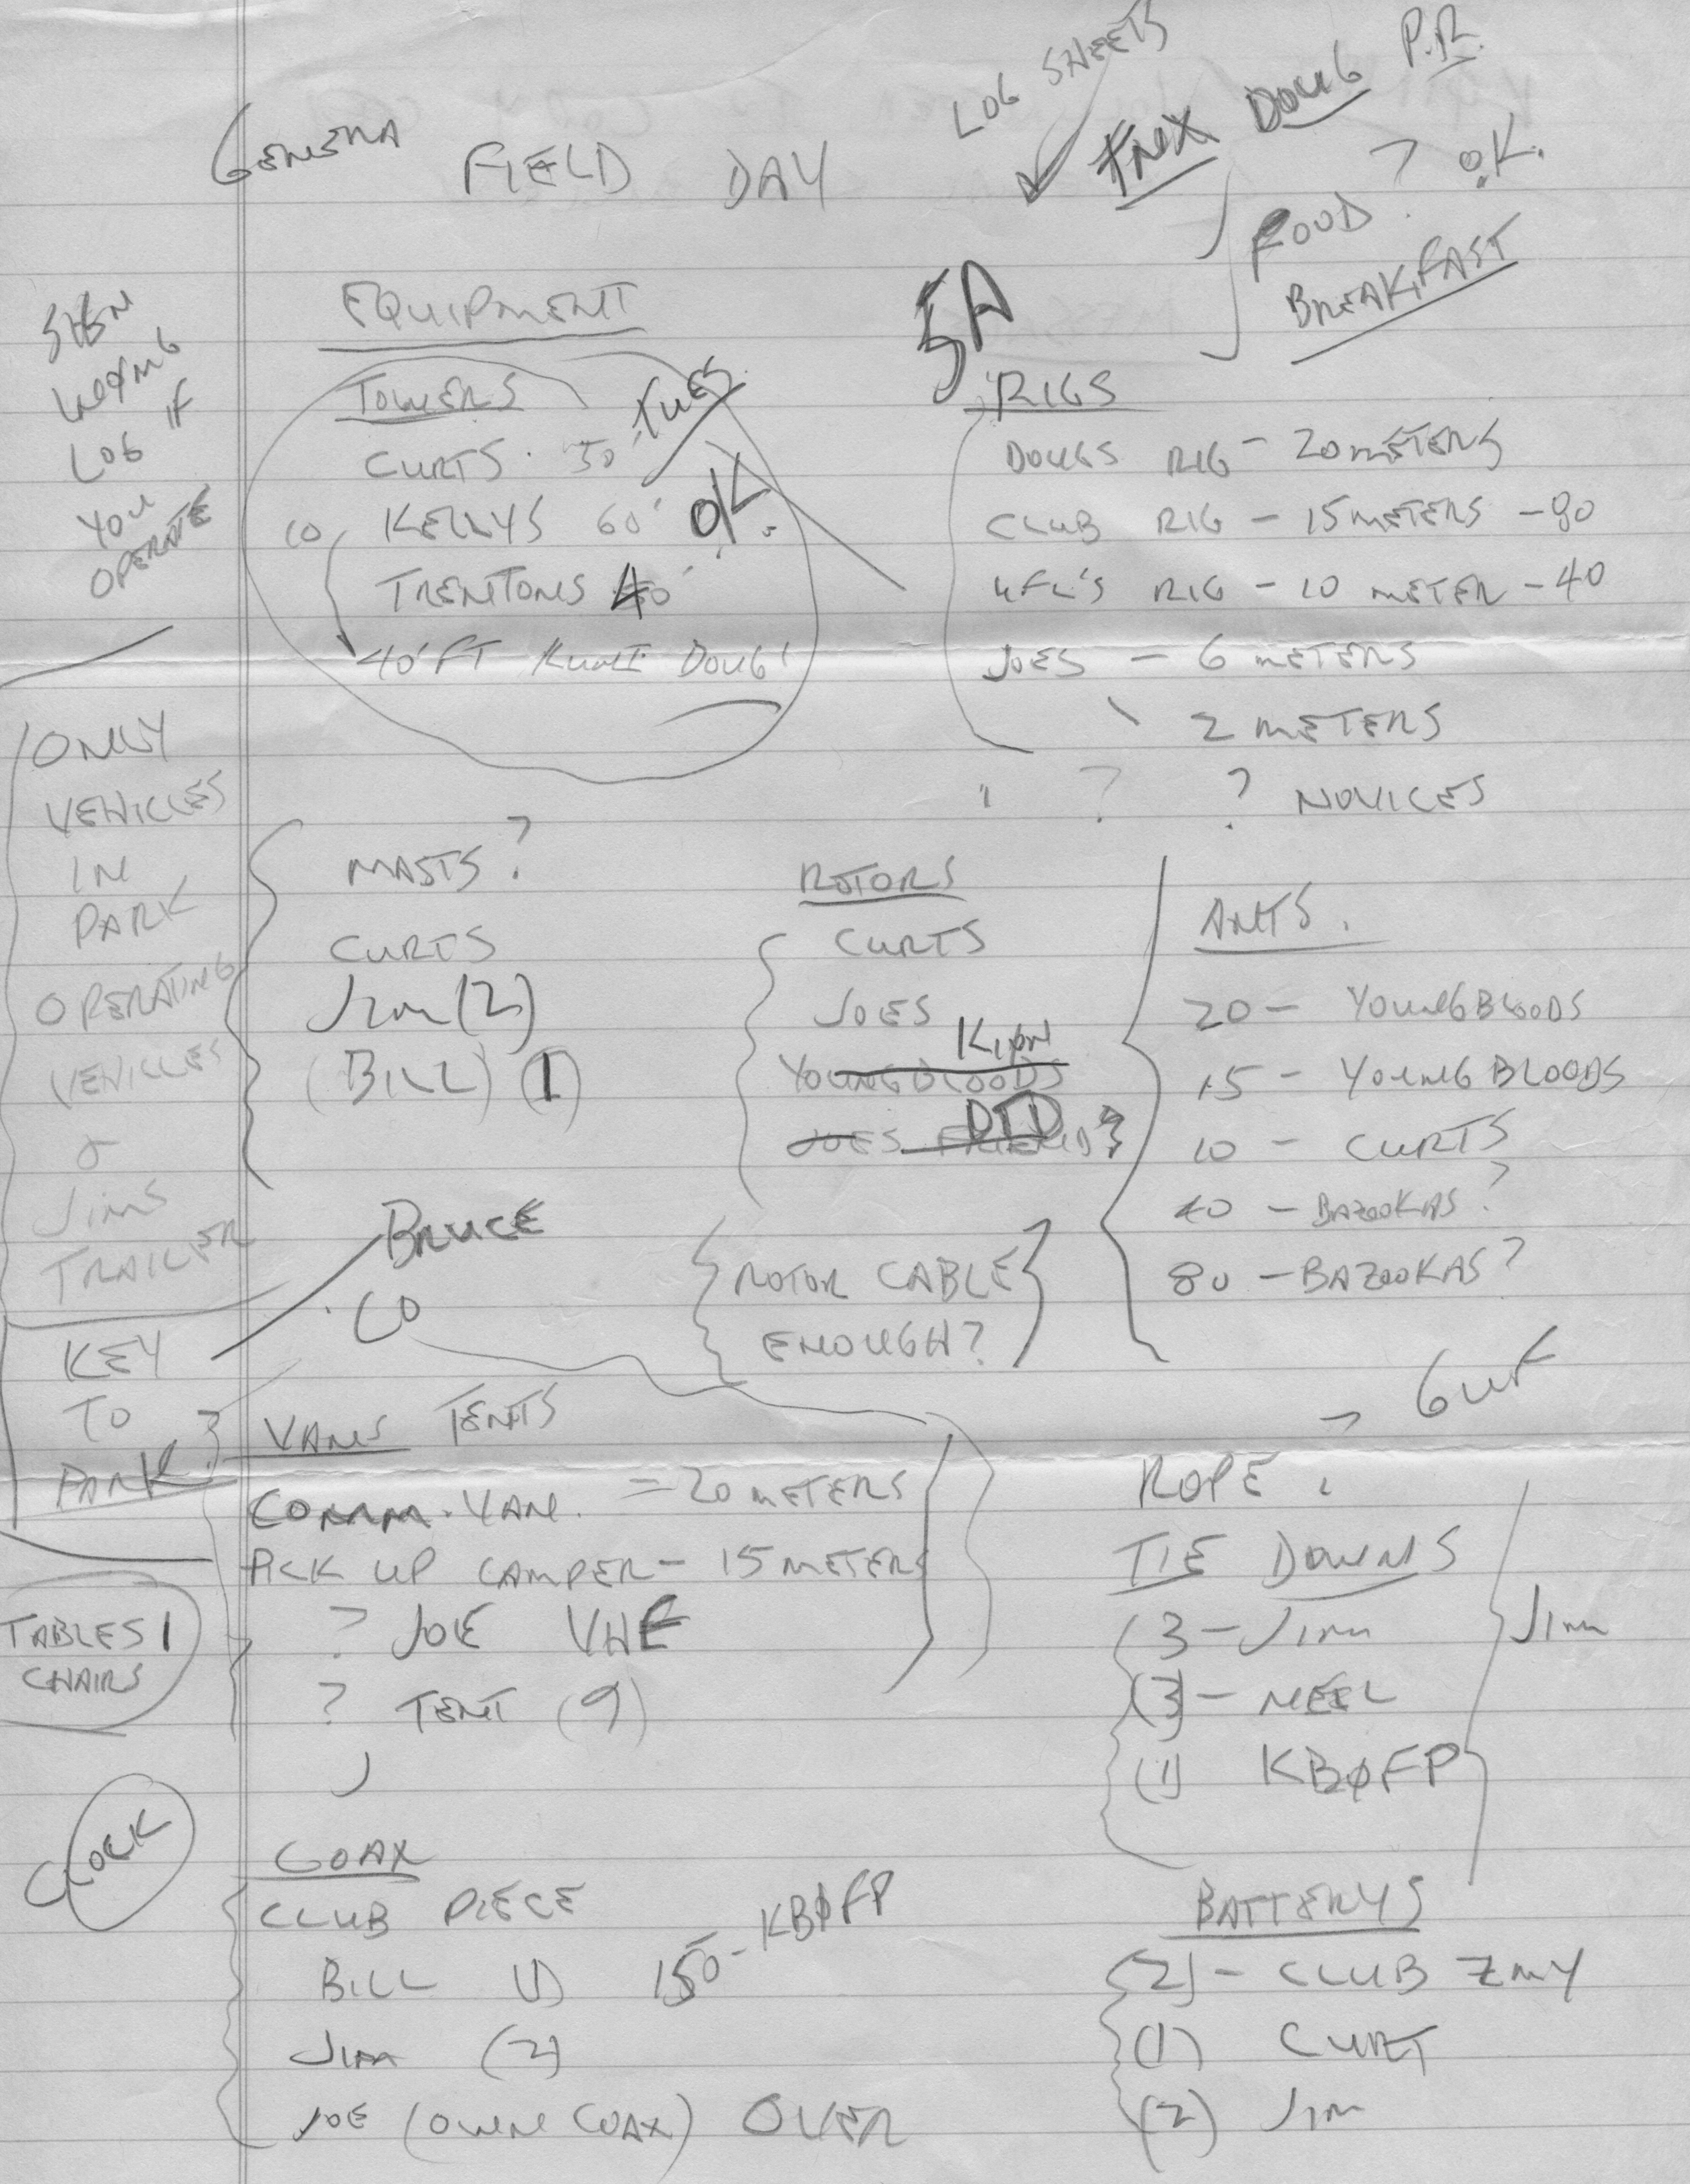 LOG SHEETS
DOUG P.R.
FIELD DAY
FOOD ? O.K.
BREAKFAST
5A
EQUIPMENT
SIGN
LOG IF
YOU
OPERATE
TOWERS
TUES
CURTS 50'
KELLYS 60' OK.
TRENTONS 40'
40'FT DOUG
RIGS
DOUGS RIG - 20 METERS
CLUB RIG - 15 METERS - 80
RIG - 10 METER - 40
JOES - 6 METERS
2 METERS
? ? NOVICES
ONLY
VEHICLES
IN
PARK
OPERATING
VEHICLES
&
JIMS
TRAILER
KEY
TO
PARK?
TABLES
CHAIRS
CLOCK
MASTS?
CURTS
JIM (2)
(BILL) (1)
BRUCE
CO
ROTORS
CURTS
JOES
YOUNGBLOODS
JOES FRIEND?
DTD
ROTOR CABLE
ENOUGH?
ANTS.
20 - YOUNGBLOODS
15 - YOUNGBLOODS
10 - CURTS
40 - BAZOOKAS?
80 - BAZOOKAS?
VANS TENTS
COMM. VAN. = 20 METERS
PICK UP CAMPER - 15 METERS
? JOE VHF
? TENT (9)
ROPE ?
TIE DOWNS
(3 - JIM
(3) - NEEL
(1) KBØFP
JIM
COAX
CLUB PIECE
BILL (1) 150 - KBØFP
JIM (2)
JOE (OWNE COAX) OVER
BATTERYS
(2) - CLUB ZMY
(1) CURT
(2) JIM